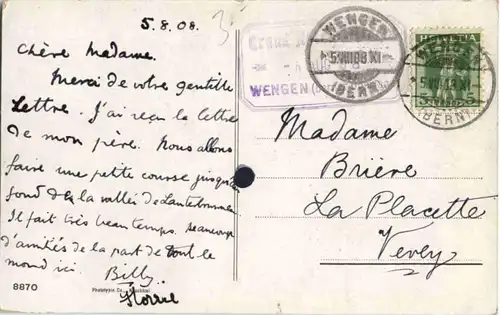 5.8.08.
Chère Madame.
Merci de votre gentille
lettre. J'ai reçu la lettre
de mon père. Nous allons
faire une petite course jusqu'au
fond de la vallée de Lauterbrunnen
Il fait très beau temps. Beaucoup
d'amitiés de la part de tout le
monde ici. Billy.
8870
WENGEN
5.VIII.08.XI
(BERN)
WENGEN
HELVETIA
WENGEN
(BERN)
Madame
Brière
La Placette
Vevey